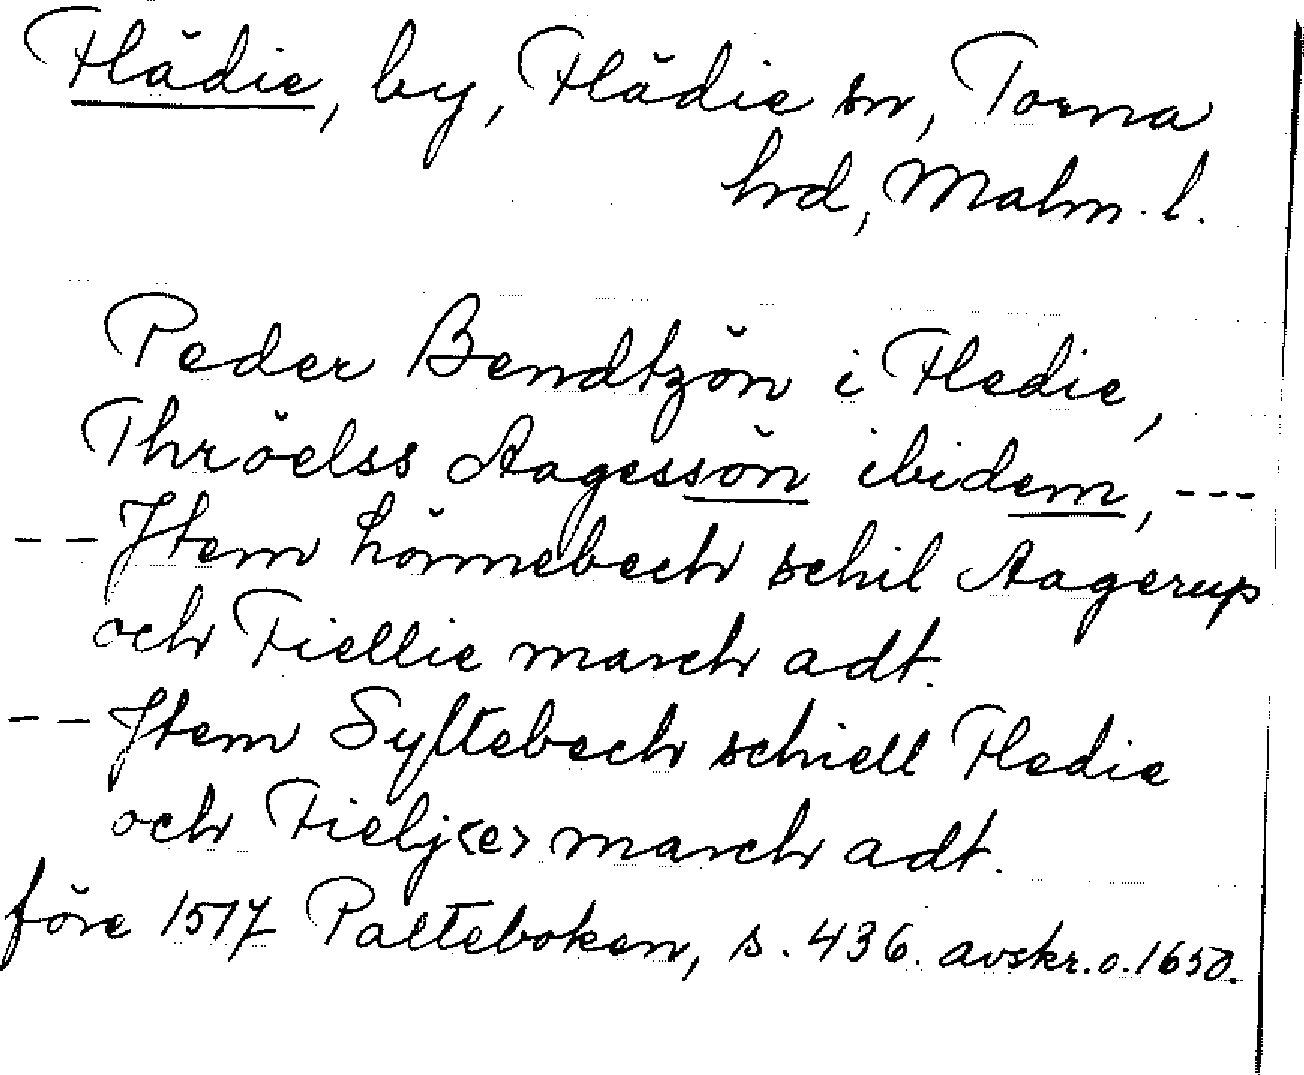 Flädie, by, Flädie sn, Torna
hrd, Malm. l.
Peder Bendtzön i Fledie,
Thröelss Aagessön ibidem, ---
-- Jtem hörmebech schil Aagerup
och Fiellie march adt.
-- Jtem Syltebech schiell Fledie
och Fielj<e> march adt.
före 1517 Palteboken, s. 436. avskr. o. 1650.